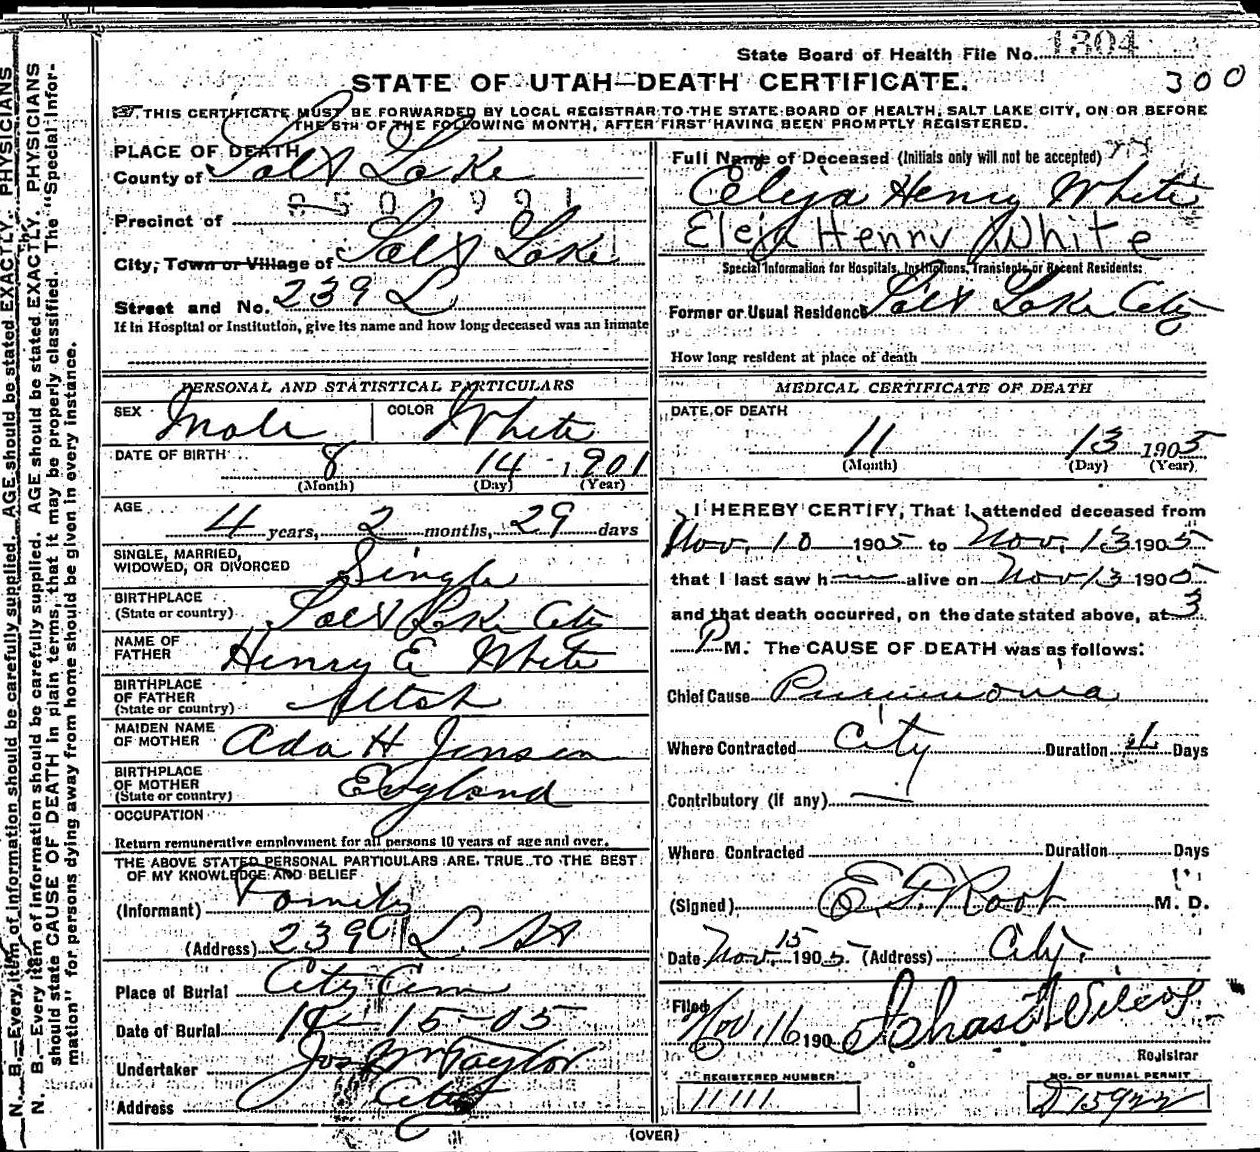 State Board of Health File No. 1304
300
STATE OF UTAH—DEATH CERTIFICATE.
THIS CERTIFICATE MUST BE FORWARDED BY LOCAL REGISTRAR TO THE STATE BOARD OF HEALTH, SALT LAKE CITY, ON OR BEFORE
THE 5TH OF THE FOLLOWING MONTH, AFTER FIRST HAVING BEEN PROMPTLY REGISTERED.
PLACE OF DEATH
County of Salt Lake
Precinct of
City, Town or Village of Salt Lake
Street and No. 239 L
If in Hospital or Institution, give its name and how long deceased was an Inmate
Full Name of Deceased (Initials only will not be accepted)
Eleja Henry White
Eleja Henry White
Special Information for Hospitals, Institutions, Transients or Recent Residents:
Former or Usual Residence Salt Lake City
How long resident at place of death
PERSONAL AND STATISTICAL PARTICULARS
SEX Male COLOR White
DATE OF BIRTH 8 14 1901
(Month) (Day) (Year)
AGE 4 years, 2 months, 29 days
SINGLE, MARRIED,
WIDOWED, OR DIVORCED Single
BIRTHPLACE
(State or country) Salt Lk City
NAME OF
FATHER Henry E White
BIRTHPLACE
OF FATHER
(State or country) Utah
MAIDEN NAME
OF MOTHER Ada H Jensen
BIRTHPLACE
OF MOTHER
(State or country) England
OCCUPATION
Return remunerative employment for all persons 10 years of age and over.
THE ABOVE STATED PERSONAL PARTICULARS ARE TRUE TO THE BEST
OF MY KNOWLEDGE AND BELIEF
(Informant) Family
(Address) 239 L. St
Place of Burial City Cem
Date of Burial 11-15-05
Undertaker Jos Wm Taylor
Address City
MEDICAL CERTIFICATE OF DEATH
DATE OF DEATH
11 13 1905
(Month) (Day) (Year)
I HEREBY CERTIFY, That I attended deceased from
Nov. 10 1905 to Nov. 13 1905
that I last saw h— alive on Nov 13 1905
and that death occurred, on the date stated above, at 3
P M. The CAUSE OF DEATH was as follows:
Chief Cause Pneumonia
Where Contracted City Duration Days
Contributory (if any) —
Where Contracted Duration Days
(Signed) E. F. Root M. D.
Date Nov. 15 1905. (Address) City.
Filed Nov. 16 190
Registrar
REGISTERED NUMBER
11111
NO. OF BURIAL PERMIT
D 15922
(OVER)
N. B.—Every item of information should be carefully supplied. AGE should be stated EXACTLY. PHYSICIANS
N. B.—Every item of information should be carefully supplied. AGE should be stated EXACTLY. PHYSICIANS
should state CAUSE OF DEATH in plain terms, that it may be properly classified. The "Special Infor-
mation" for persons dying away from home should be given in every instance.